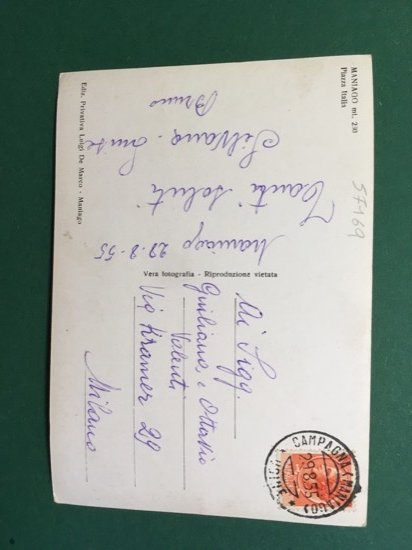 MANIAGO mt. 290
Piazza Italia
57169
Maniago 29-8-55
Tanti saluti
Silvana - Giuse
Bruno
Ediz. Privativa Luigi De Marco - Maniago
Vera fotografia - Riproduzione vietata
Ai Sigg.
Giuliana, e Ottavio
Valenti
Via Kramer 29
Milano
CAMPAGNA (MANIAGO)
29.8.55